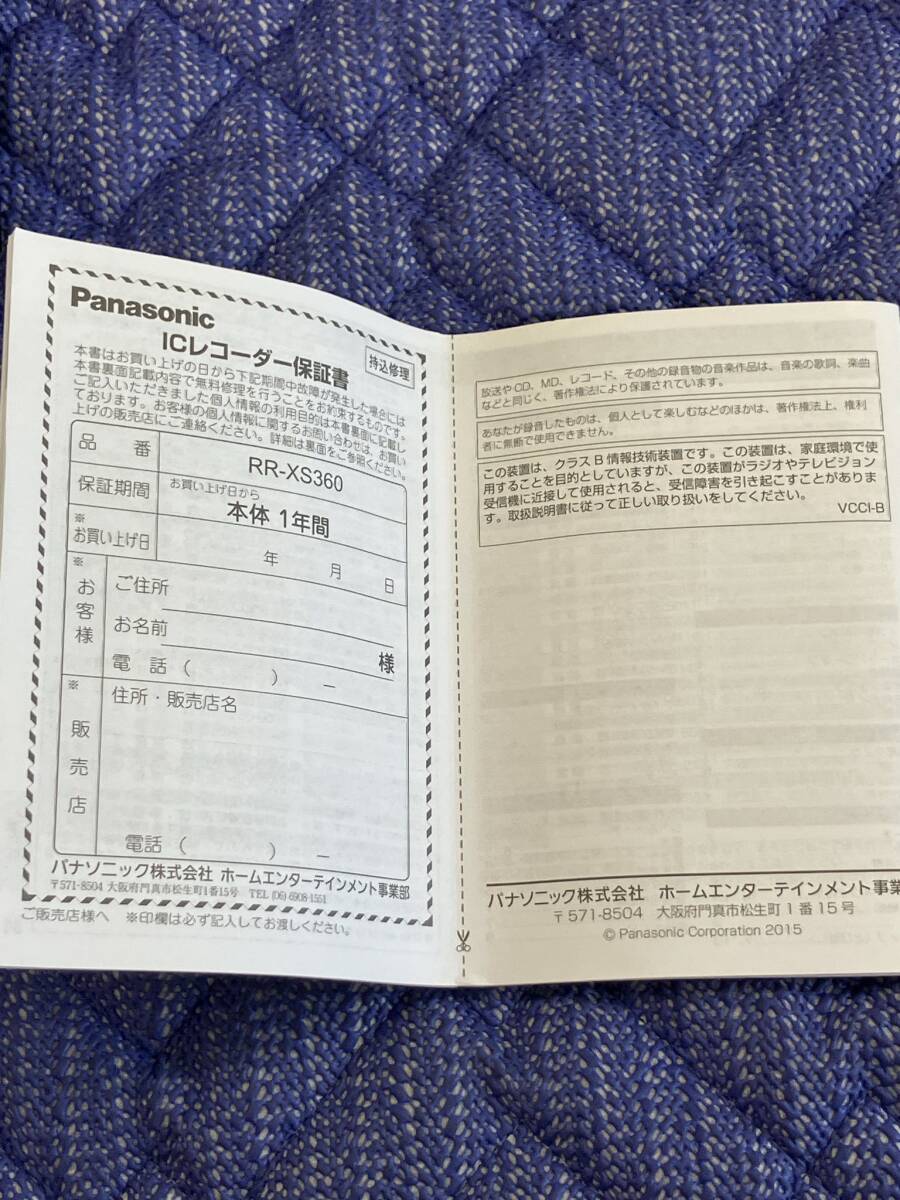 Panasonic
ICレコーダー保証書
持込修理
本書はお買い上げの日から下記期間中故障が発生した場合には
本書裏面記載内容で無料修理を行うことをお約束するものです。
ご記入いただきました個人情報の利用目的は本書裏面に記載し
ております。お客様の個人情報に関するお問い合わせは、お買い
上げの販売店にご連絡ください。詳細は裏面をご参照ください。
品 番 RR-XS360
保証期間 お買い上げ日から
本体 1年間
※
お買い上げ日 年 月 日
※
お客様
ご住所
お名前 様
電 話 ( ) −
※
販売店
住所・販売店名
電話 ( ) −
パナソニック株式会社 ホームエンターテインメント事業部
〒571-8504 大阪府門真市松生町1番15号 TEL (06) 6908-1551
ご販売店様へ ※印欄は必ず記入してお渡しください。
放送や CD、MD、レコード、その他の録音物の音楽作品は、音楽の歌詞、楽曲
などと同じく、著作権法により保護されています。
あなたが録音したものは、個人として楽しむなどのほかは、著作権法上、権利
者に無断で使用できません。
この装置は、クラス B 情報技術装置です。この装置は、家庭環境で使
用することを目的としていますが、この装置がラジオやテレビジョン
受信機に近接して使用されると、受信障害を引き起こすことがありま
す。取扱説明書に従って正しい取り扱いをしてください。
VCCI-B
パナソニック株式会社 ホームエンターテインメント事業
〒571-8504 大阪府門真市松生町 1 番 15 号
© Panasonic Corporation 2015